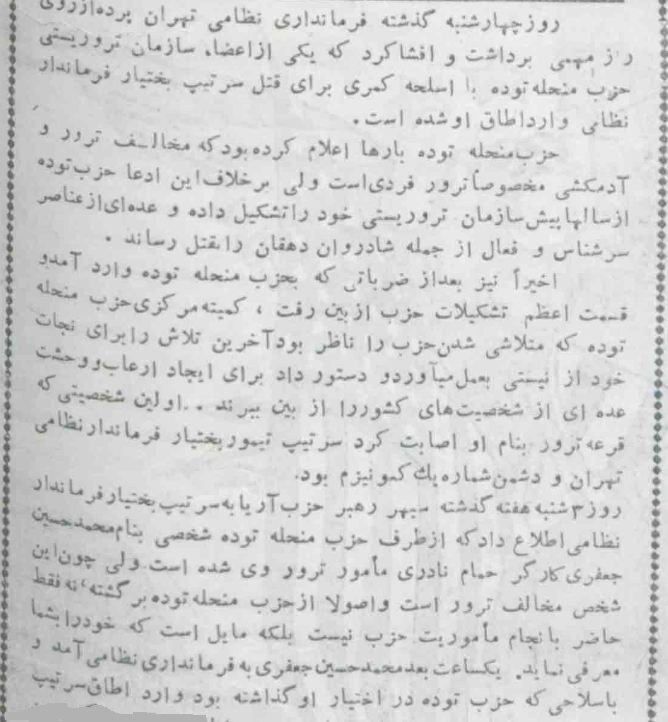 روز چهارشنبه گذشته فرمانداری نظامی تهران پرده ازروی
راز مهمی برداشت و افشا کرد که یکی از اعضاء سازمان تروریستی
حزب منحله توده با اسلحه کمری برای قتل سرتیپ بختیار فرماندار
نظامی وارد اطاق او شده است.
حزب منحله توده بارها اعلام کرده بود که مخالف ترور و
آدمکشی مخصوصاً ترور فردی است ولی برخلاف این ادعا حزب توده
از سالها پیش سازمان تروریستی خود را تشکیل داده و عده ای از عناصر
سرشناس و فعال از جمله شادروان دهقان را بقتل رساند .
اخیراً نیز بعد از ضرباتی که بحزب منحله توده وارد آمد و
قسمت اعظم تشکیلات حزب از بین رفت ، کمیته مرکزی حزب منحله
توده که متلاشی شدن حزب را ناظر بود آخرین تلاش را برای نجات
خود از نیستی بعمل میآورد و دستور داد برای ایجاد ارعاب و وحشت
عده ای از شخصیت های کشور را از بین ببرند . . اولین شخصیتی که
قرعه ترور بنام او اصابت کرد سرتیپ تیمور بختیار فرماندار نظامی
تهران و دشمن شماره یك کمونیزم بود.
روز ۳ شنبه هفته گذشته سپهر رهبر حزب آریا به سرتیپ بختیار فرماندار
نظامی اطلاع داد که از طرف حزب منحله توده شخصی بنام محمد حسین
جعفری کارگر حمام نادری مأمور ترور وی شده است ولی چون این
شخص مخالف ترور است و اصولا از حزب منحله توده برگشته ، نه فقط
حاضر بانجام مأموریت حزب نیست بلکه مایل است که خود را بشما
معرفی نماید. یکساعت بعد محمد حسین جعفری به فرمانداری نظامی آمد و
با سلاحی که حزب توده در اختیار او گذاشته بود وارد اطاق سرتیپ